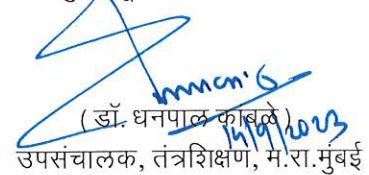 ( डॉ. धनपाल कांबळे )
14/9/2023
उपसंचालक, तंत्रशिक्षण, म.रा.मुंबई